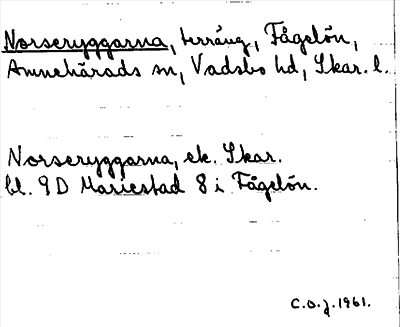 Norseryggarna, terräng, Fågelön,
Amnehärads sn, Vadsbo hd, Skar. l.
Norseryggarna, ek. Skar.
bl. 9D Mariestad 8 i Fågelön.
C.O.J. 1961.